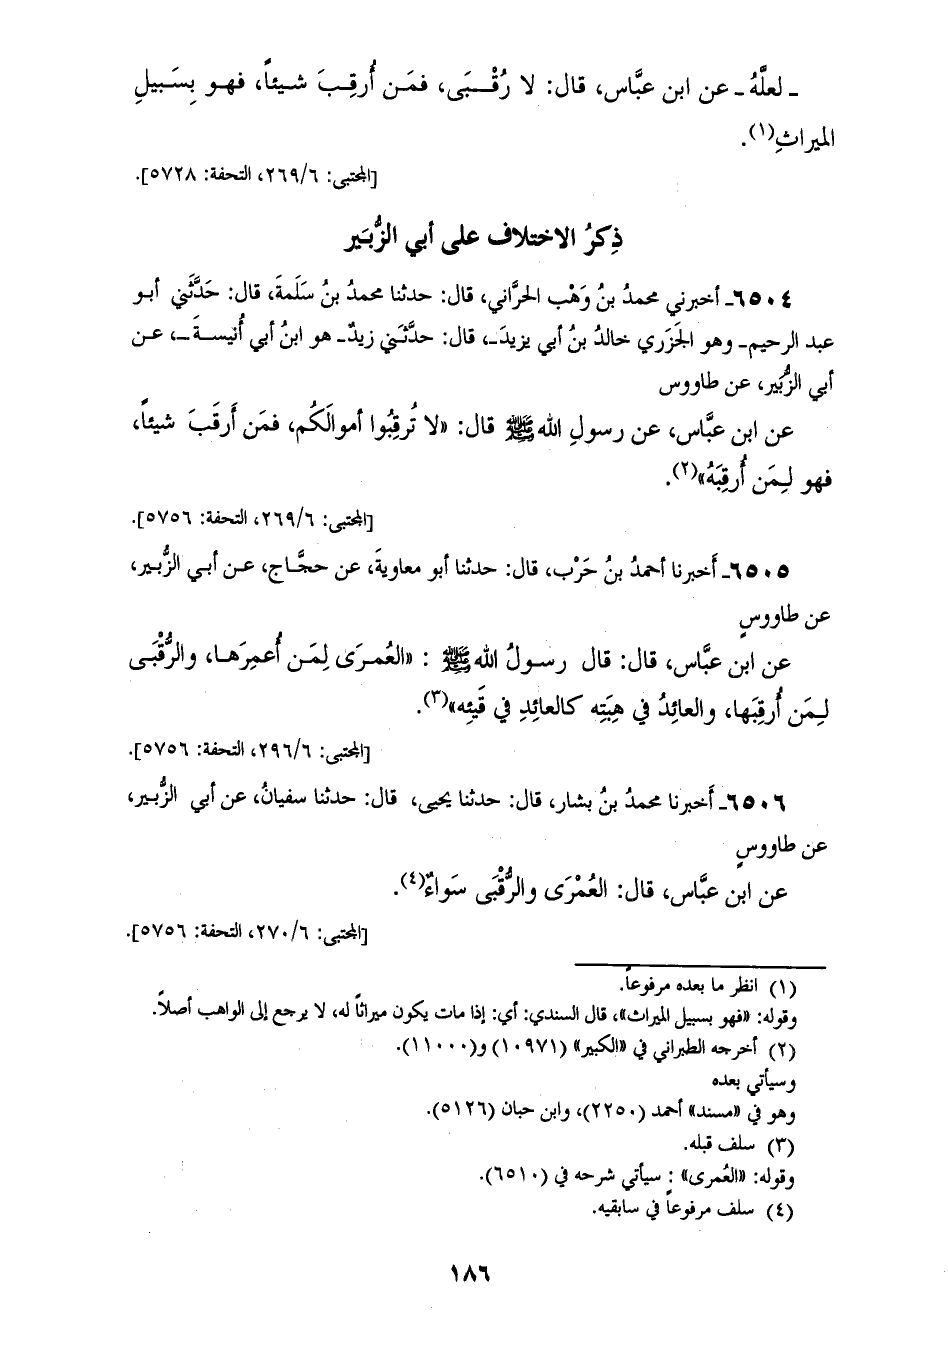 ـ لعلَّهُ ـ عن ابن عبَّاس، قال: لا رُقْـبَى، فمَـن أُرقِـبَ شـيئاً، فهـو بِسَـبيلِ
الميراثِ(١).
[المجتبى: ٢٦٩/٦، التحفة: ٥٧٢٨].
ذِكرُ الاختلاف على أبي الزُّبَير
٦٥٠٤ـ أخبرني محمدُ بنُ وَهْب الحرَّاني، قال: حدثنا محمدُ بنُ سَلَمةَ، قال: حَدَّثَني أبـو
عبد الرحيم ـ وهو الجَزَري خالدُ بنُ أبي يزيدَ ـ، قال: حدَّثَـني زيدٌ ـ هو ابنُ أبي أُنيسـةَ ـ، عـن
أبي الزُّبَير، عن طاووس
عن ابن عبَّاس، عن رسولِ الله ﷺ قال: «لا تُرقِبُوا أموالَكُم، فمَن أَرقَبَ شيئاً،
فهو لِـمَن أُرقِبَهُ»(٢).
[المجتبى: ٢٦٩/٦، التحفة: ٥٧٥٦].
٦٥٠٥ـ أَخبرنا أحمدُ بنُ حَرْب، قال: حدثنا أبو معاويةَ، عن حجَّـاج، عـن أبـي الزُّبـير،
عن طاووسٍ
عن ابن عبَّاس، قال: قال رسـولُ الله ﷺ : «العُمـرَى لِمَـن أُعمِرَهـا، والرُّقْبَـى
لِـمَن أُرقِبَها، والعائِدُ في هِبَتِه كالعائِدِ في قَيئِه»(٣).
[المجتبى: ٢٩٦/٦، التحفة: ٥٧٥٦].
٦٥٠٦ـ أَخبرنا محمدُ بنُ بشار، قال: حدثنا يحيى، قال: حدثنا سفيانُ، عن أبي الزُّبـير،
عن طاووسٍ
عن ابن عبَّاس، قال: العُمْرَى والرُّقْبَى سَواءٌ(٤).
[المجتبى: ٢٧٠/٦، التحفة: ٥٧٥٦].
(١) انظر ما بعده مرفوعاً.
وقوله: «فهو بسبيل الميراث»، قال السندي: أي: إذا مات يكون ميراثاً له، لا يرجع إلى الواهب أصلاً.
(٢) أخرجه الطبراني في «الكبير» (١٠٩٧١) و(١١٠٠٠).
وسيأتي بعده
وهو في «مسند» أحمد (٢٢٥٠)، وابن حبان (٥١٢٦).
(٣) سلف قبله.
وقوله: «العُمرى» : سيأتي شرحه في (٦٥١٠).
(٤) سلف مرفوعاً في سابقيه.
١٨٦